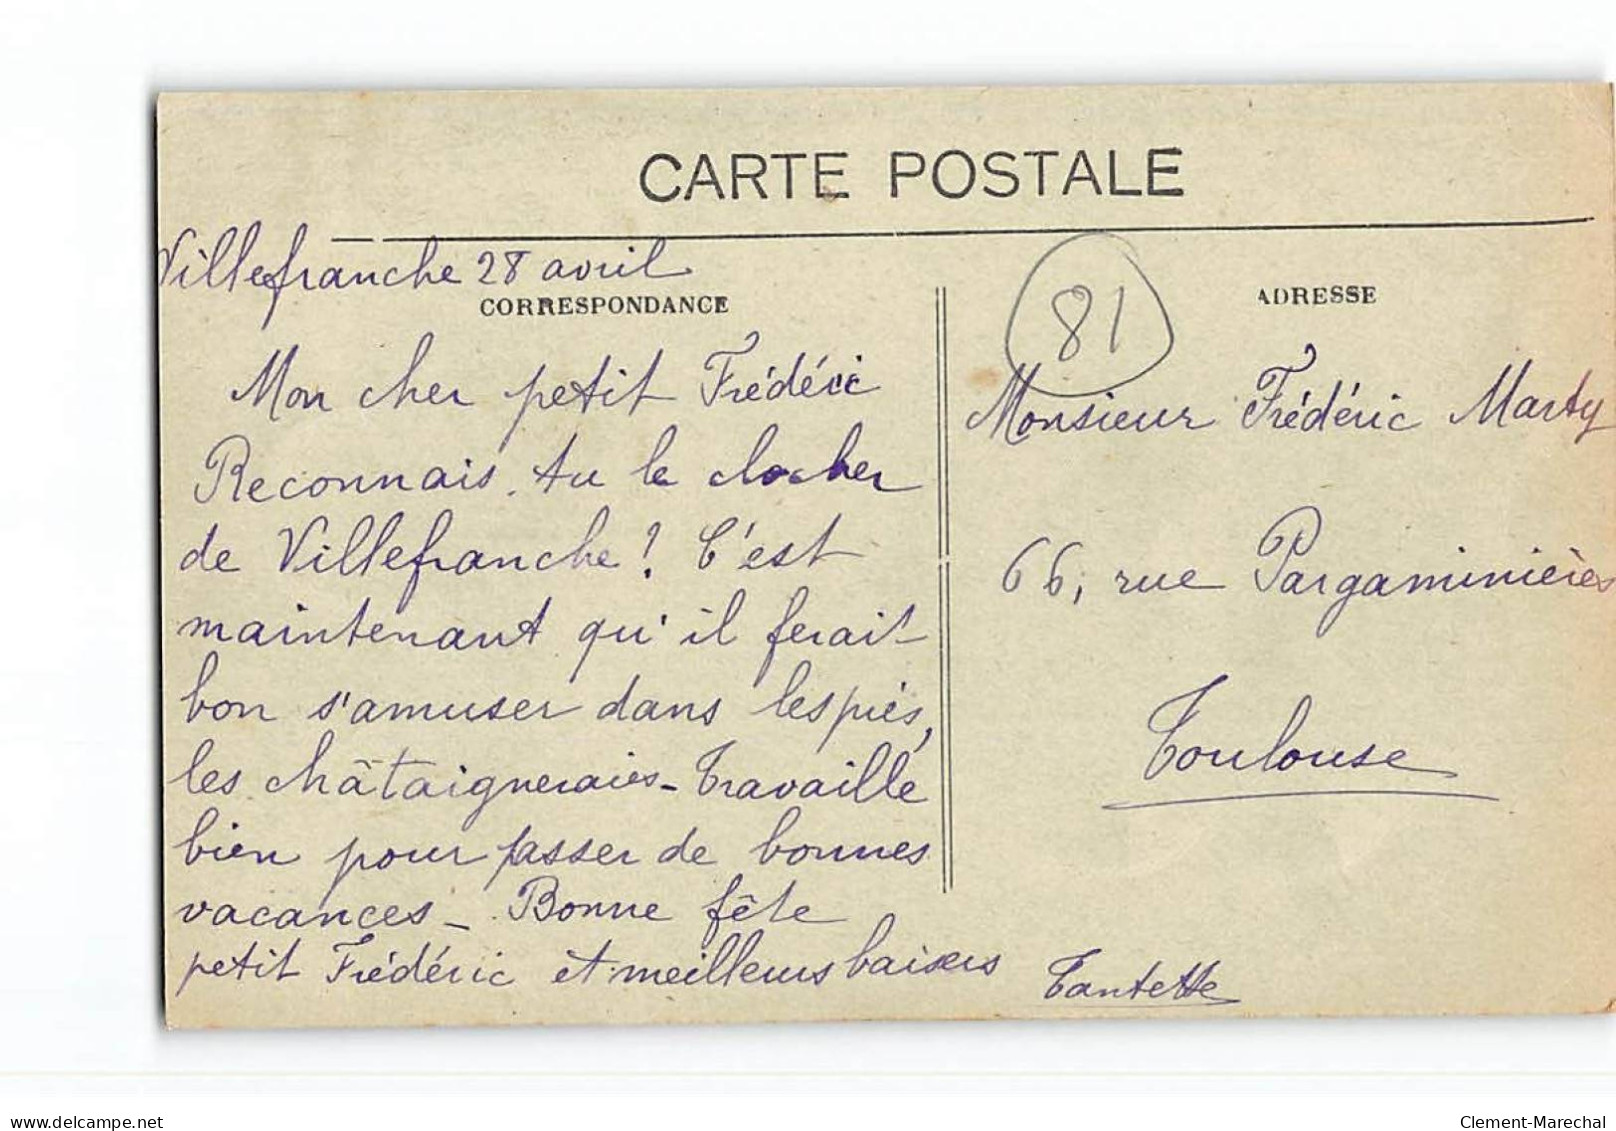 CARTE POSTALE
Villefranche 28 avril
CORRESPONDANCE
Mon cher petit Frédéric
Reconnais-tu le clocher
de Villefranche ? C'est
maintenant qu'il ferait
bon s'amuser dans les prés,
les châtaigneraies - Travaille
bien pour passer de bonnes
vacances - Bonne fête
petit Frédéric et meilleurs baisers
Tantette
81
ADRESSE
Monsieur Frédéric Marty
66, rue Pargaminières
Toulouse
www.delcampe.net
Clement-Marechal